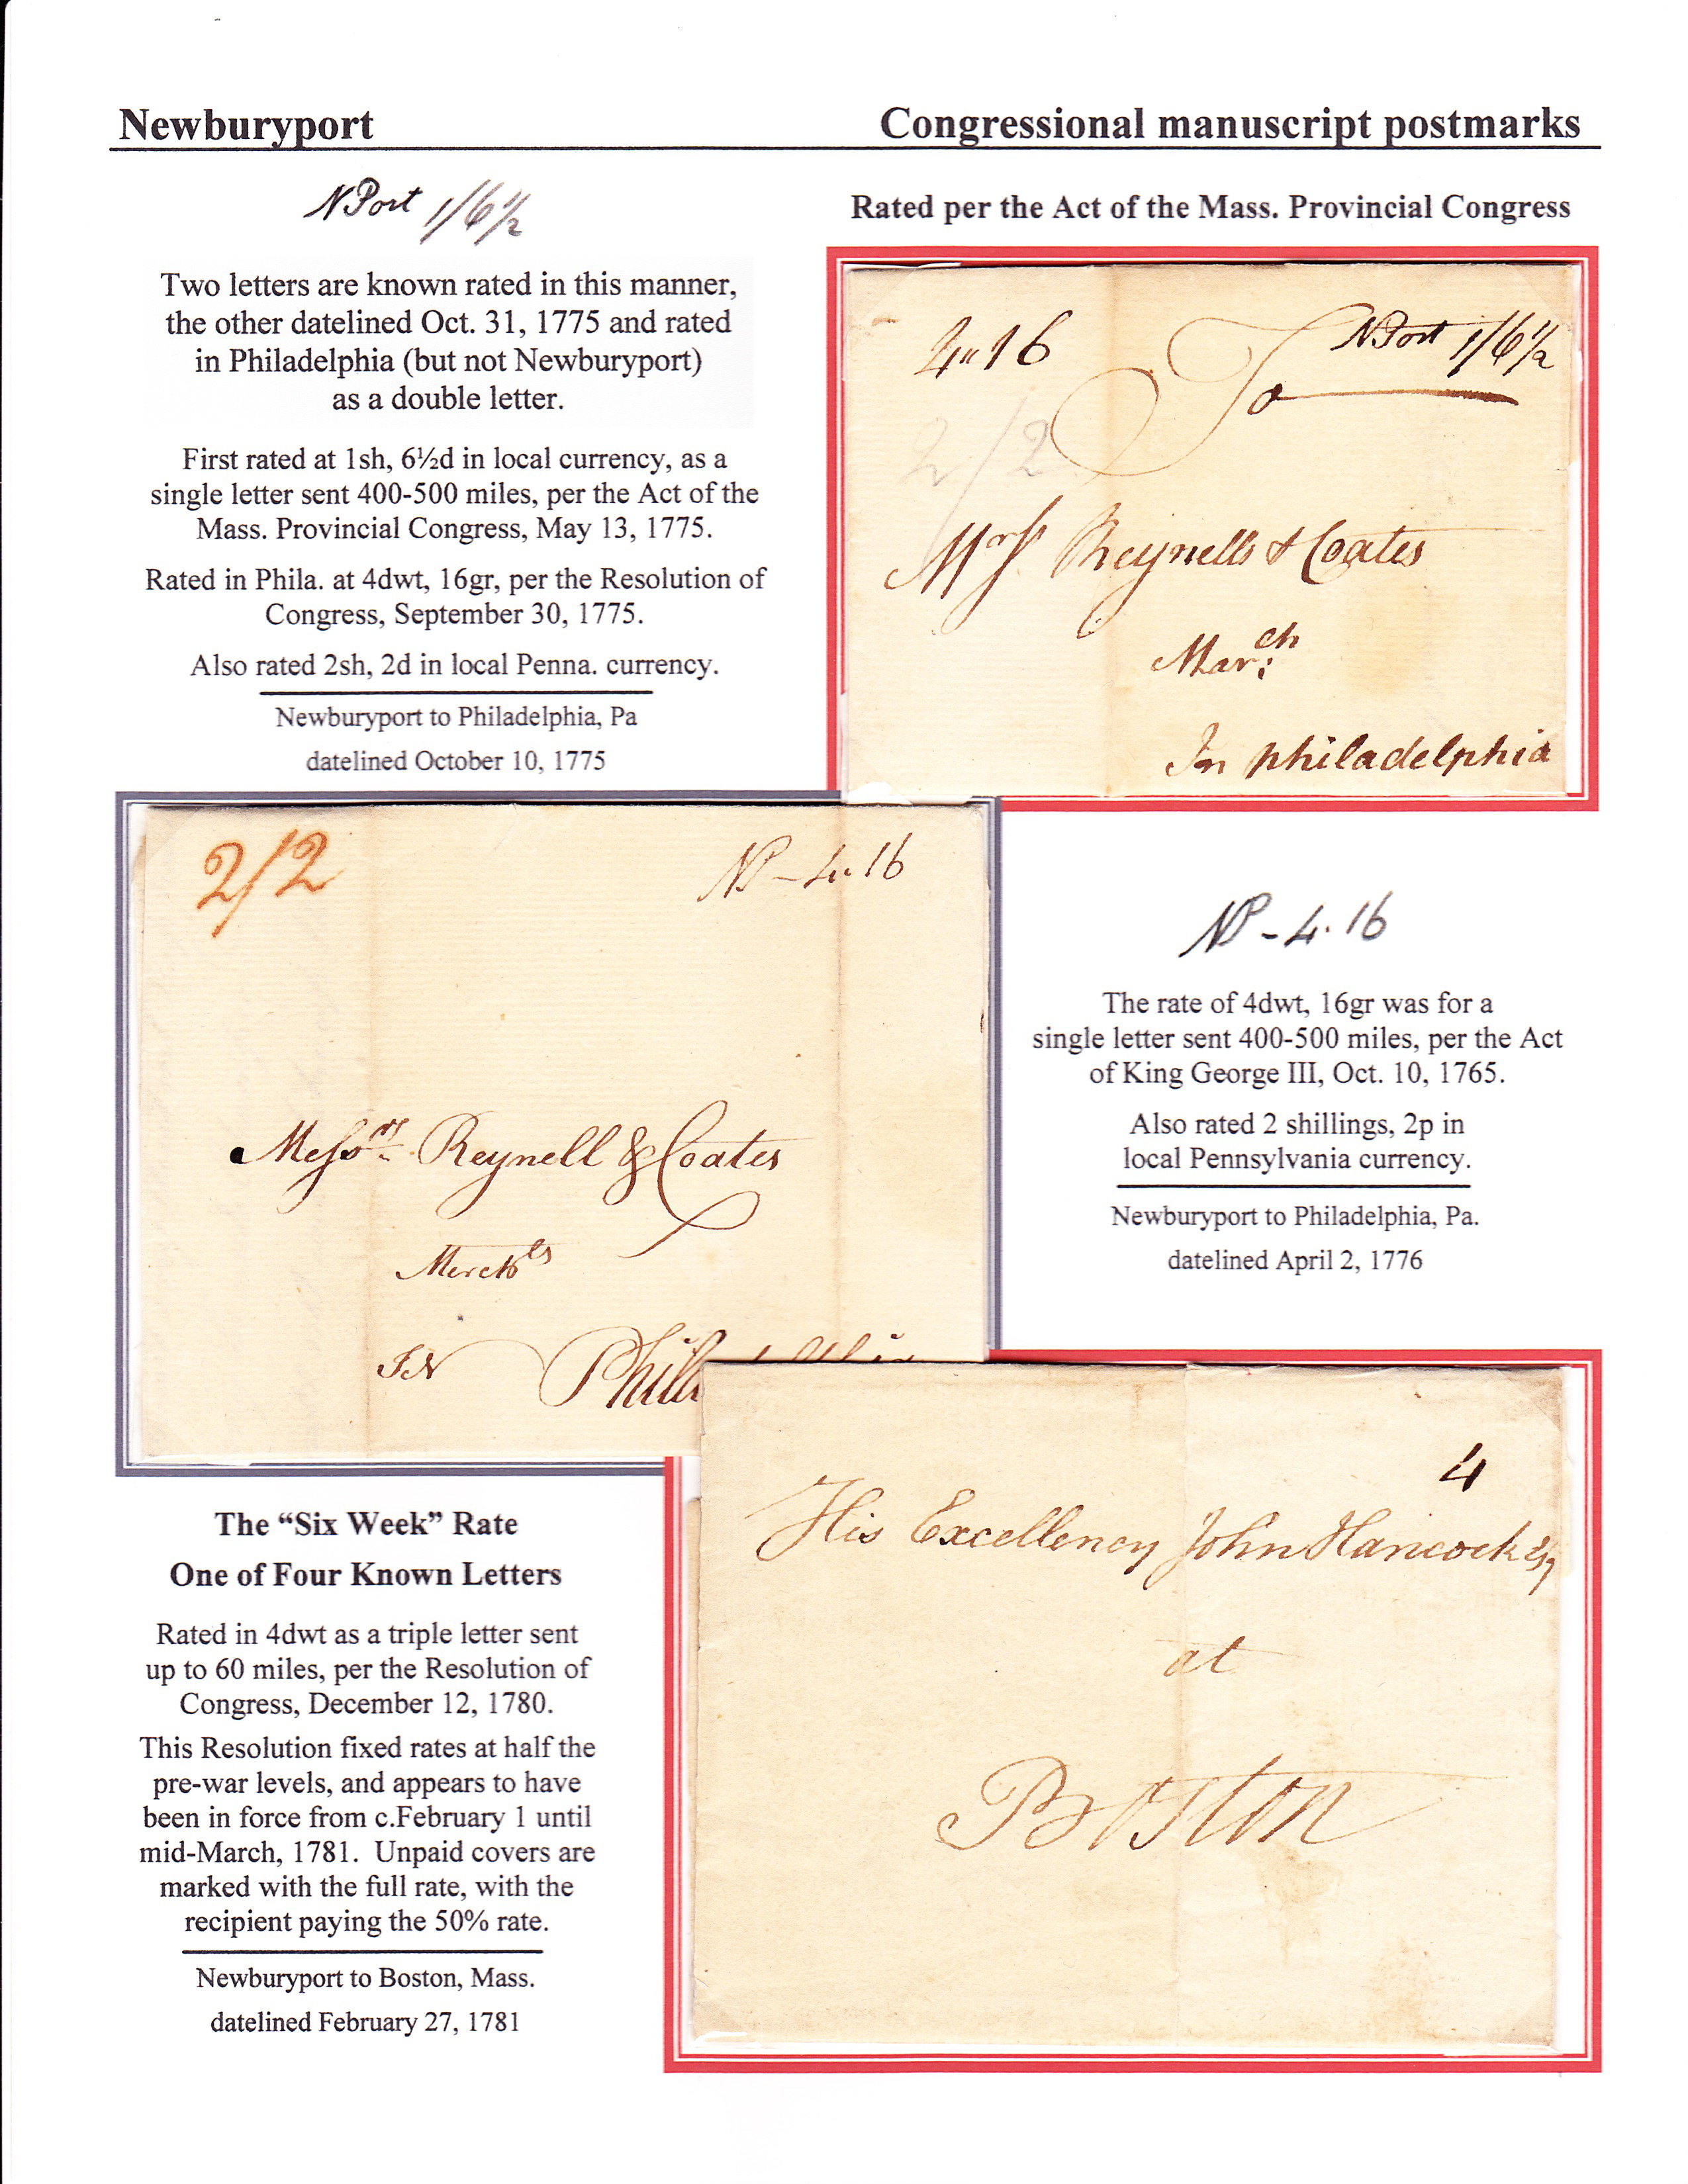 Newburyport
Congressional manuscript postmarks
NPort 1/6½
Two letters are known rated in this manner,
the other datelined Oct. 31, 1775 and rated
in Philadelphia (but not Newburyport)
as a double letter.
First rated at 1sh, 6½d in local currency, as a
single letter sent 400-500 miles, per the Act of the
Mass. Provincial Congress, May 13, 1775.
Rated in Phila. at 4dwt, 16gr, per the Resolution of
Congress, September 30, 1775.
Also rated 2sh, 2d in local Penna. currency.
Newburyport to Philadelphia, Pa
datelined October 10, 1775
Rated per the Act of the Mass. Provincial Congress
4"16
To
NPort 1/6½
2/2
Mrs Reynells & Coates
Mar:ch
In philadelphia
2/2
NP - 4..16
Messrs Reynell & Coates
Merchts
IN Phila
NP - 4.16
The rate of 4dwt, 16gr was for a
single letter sent 400-500 miles, per the Act
of King George III, Oct. 10, 1765.
Also rated 2 shillings, 2p in
local Pennsylvania currency.
Newburyport to Philadelphia, Pa.
datelined April 2, 1776
The “Six Week” Rate
One of Four Known Letters
Rated in 4dwt as a triple letter sent
up to 60 miles, per the Resolution of
Congress, December 12, 1780.
This Resolution fixed rates at half the
pre-war levels, and appears to have
been in force from c.February 1 until
mid-March, 1781.  Unpaid covers are
marked with the full rate, with the
recipient paying the 50% rate.
Newburyport to Boston, Mass.
datelined February 27, 1781
4
His Excellency John Hancock Esq
at
Boston